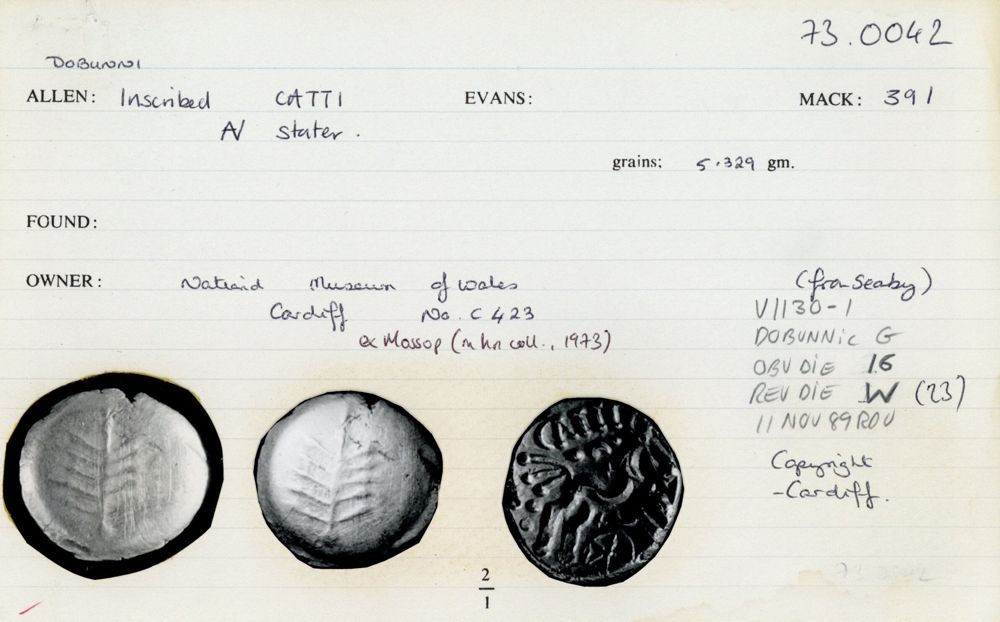 73.0042
DOBUNNI
ALLEN: Inscribed CATTI EVANS: MACK: 391
N stater.
grains: 5.329 gm.
FOUND:
OWNER: National Museum of Wales (from Seaby)
Cardiff No. C 423 V1130-1
ex Mossop (in his coll., 1973) DOBUNNIC G
OBV DIE 16
REV DIE W (23)
11 NOV 89 RDV
Copyright
-Cardiff.
73.0042
2
1